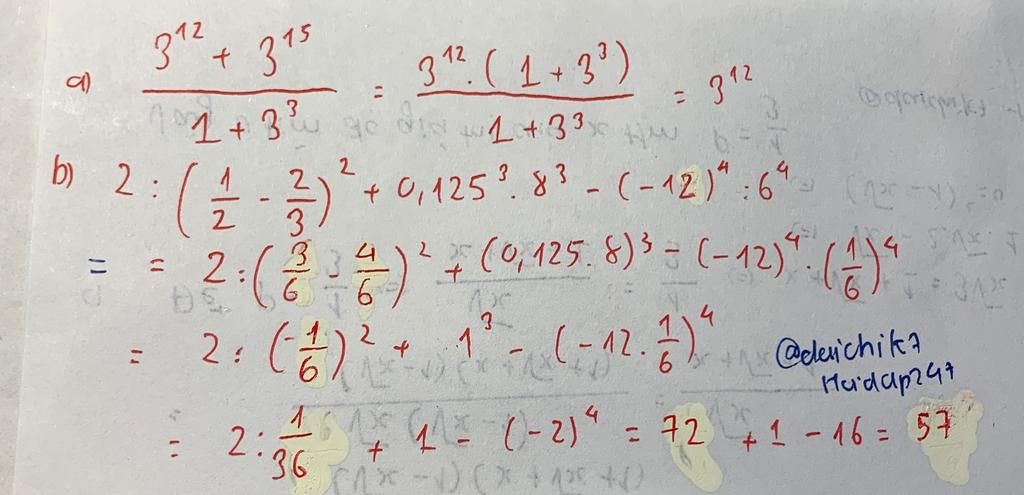 a) (3^12 + 3^15)/(1 + 3^3) = (3^12 . (1 + 3^3))/(1 + 3^3) = 3^12
b) 2 : (1/2 - 2/3)^2 + 0,125^3 . 8^3 - (-12)^4 : 6^4
= = 2 : (3/6 - 4/6)^2 + (0,125 . 8)^3 - (-12)^4 . (1/6)^4
= 2 : (-1/6)^2 + 1^3 - (-12 . 1/6)^4
@derichik7
Hoidap247
= 2 : 1/36 + 1 - (-2)^4 = 72 + 1 - 16 = 57